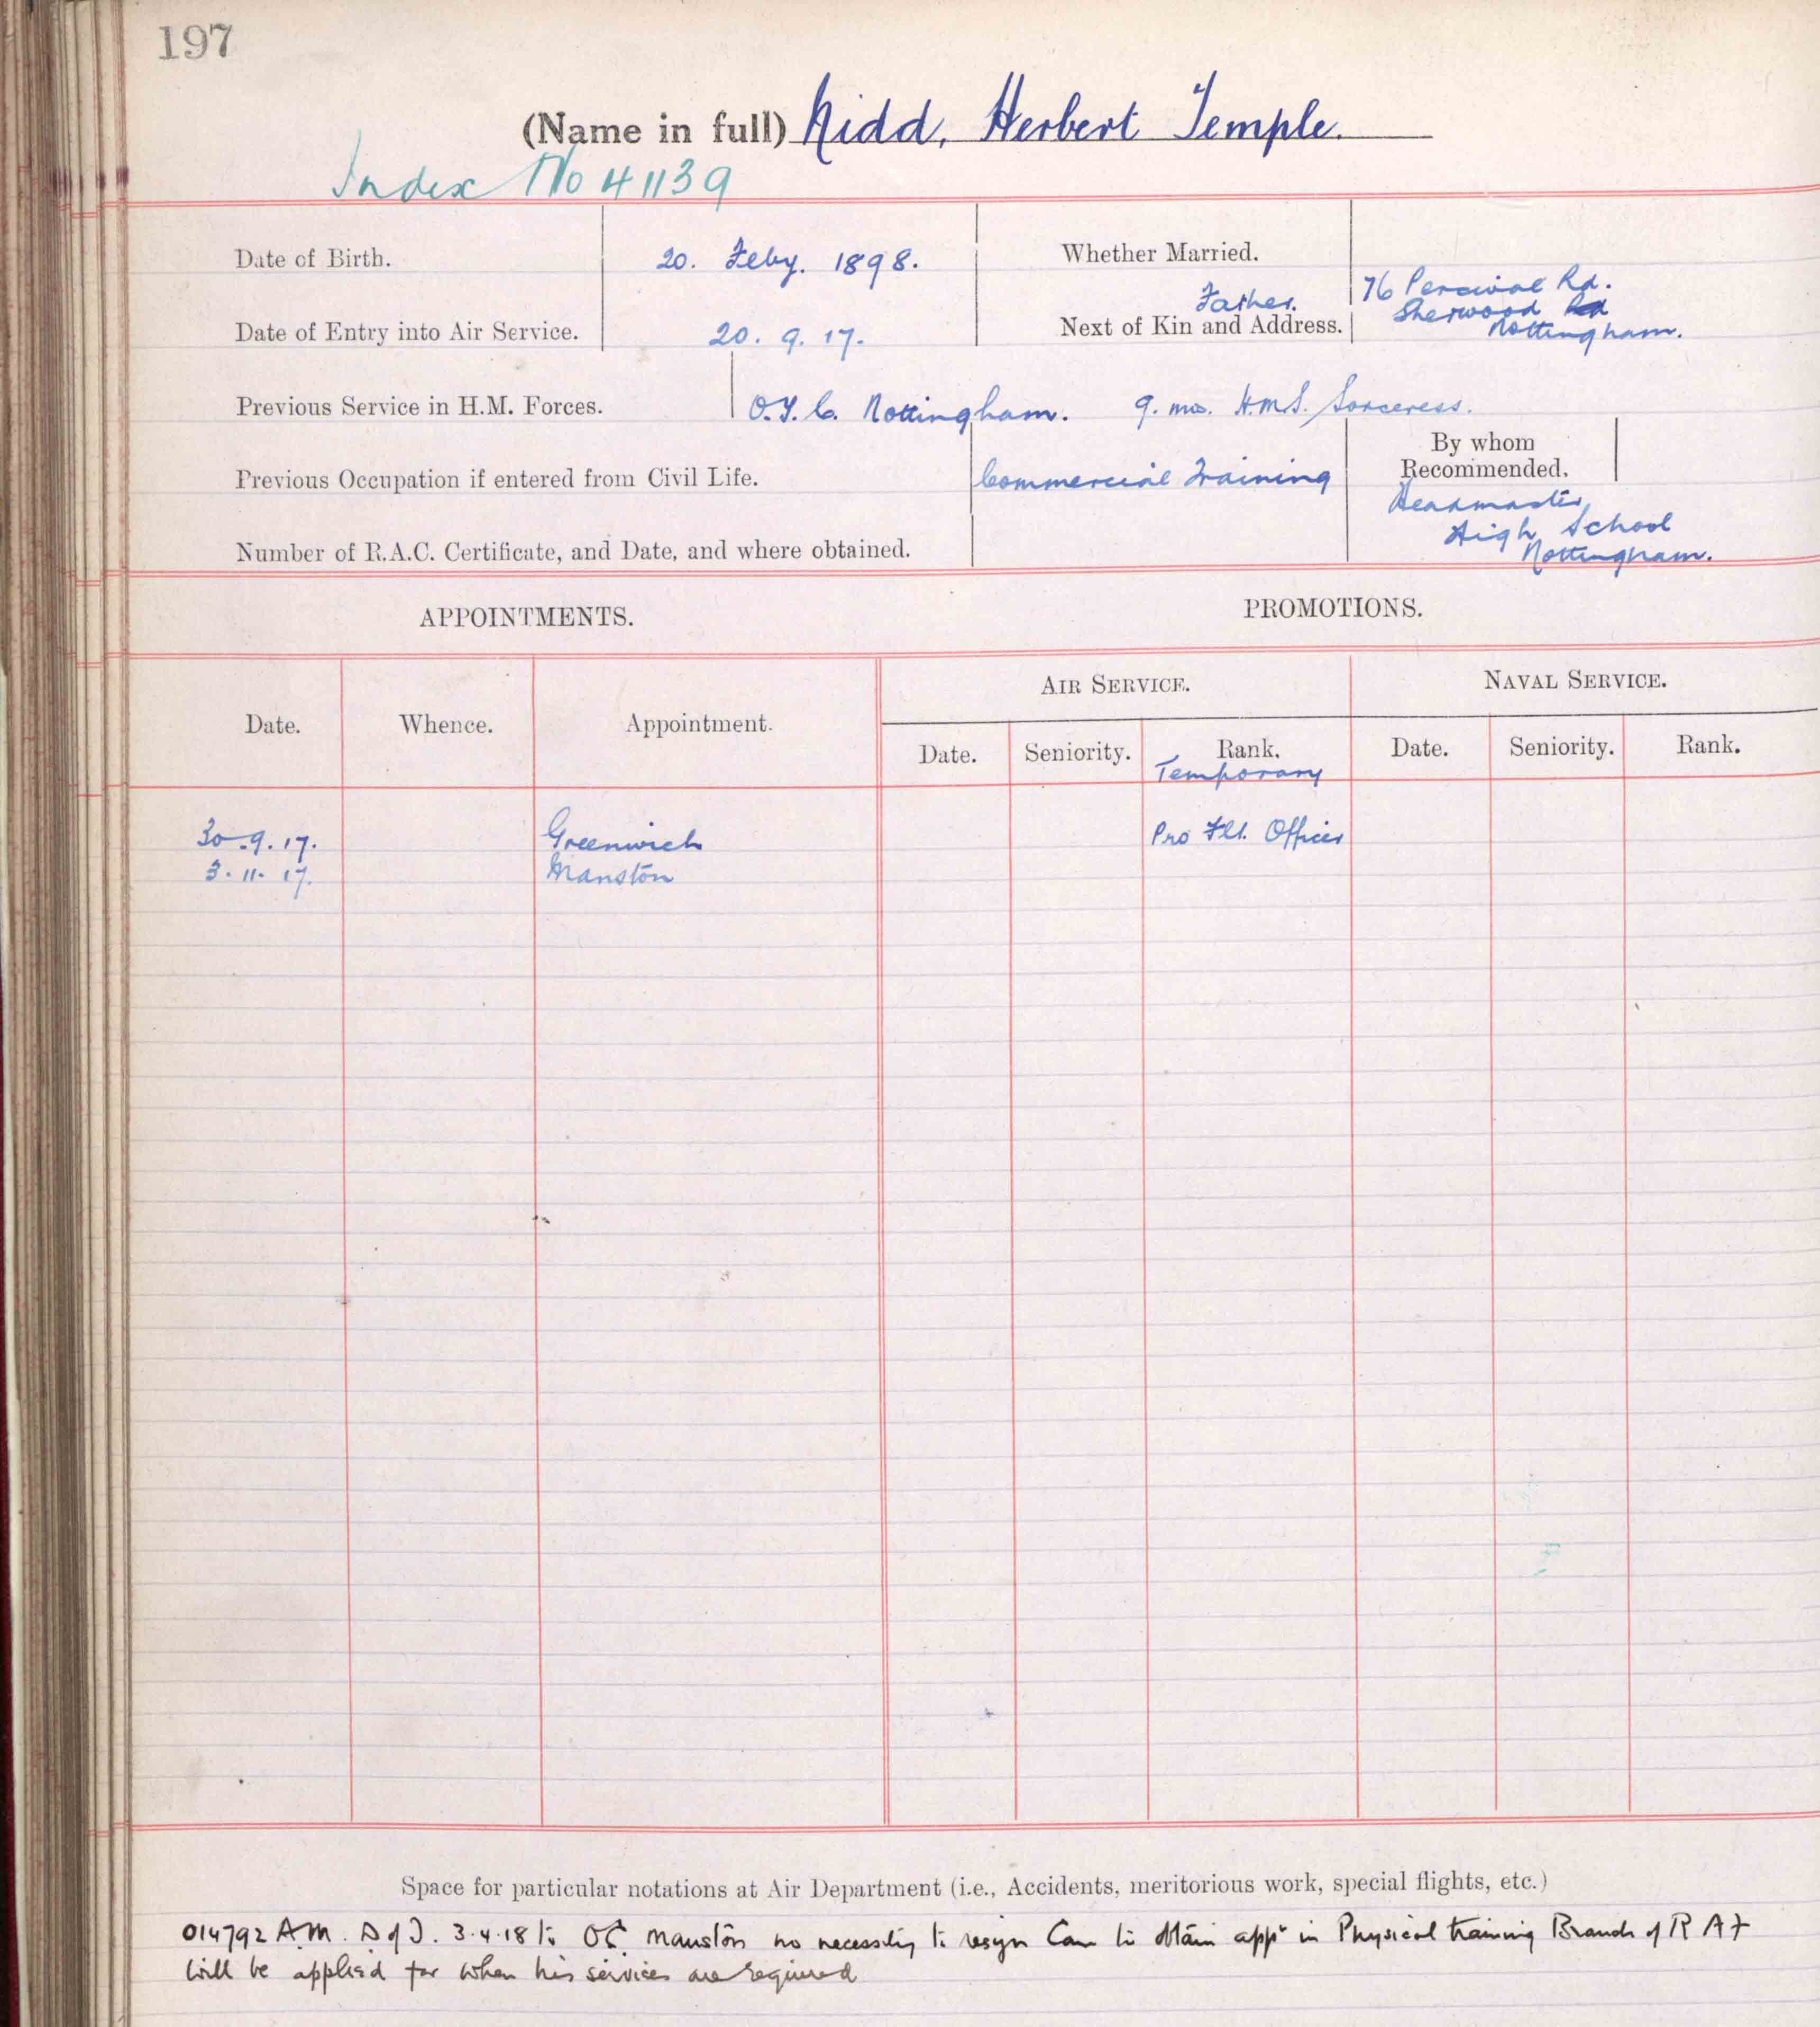 197
(Name in full) Nidd, Herbert Temple.
Index No 41139
Date of Birth. 20. Feby. 1898. Whether Married.
Date of Entry into Air Service. 20. 9. 17. Father. Next of Kin and Address. 76 Percival Rd.
Sherwood Rd
Nottingham.
Previous Service in H.M. Forces. O.T.C. Nottingham. 9. mos. H.M.S. Sorceress.
Previous Occupation if entered from Civil Life. Commercial Training By whom Recommended.
Headmaster
High School
Nottingham.
Number of R.A.C. Certificate, and Date, and where obtained.
APPOINTMENTS. PROMOTIONS.
AIR SERVICE. NAVAL SERVICE.
Date. Whence. Appointment. Date. Seniority. Rank. Date. Seniority. Rank.
Temporary
30.9.17. Greenwich Pro Flt. Officer
3.11.17. Manston
Space for particular notations at Air Department (i.e., Accidents, meritorious work, special flights, etc.)
014792 A.M. 3.4.18 to OC Manston no necessity to resign Com to obtain appt in Physical training Branch of R A F
Will be applied for when his services are required